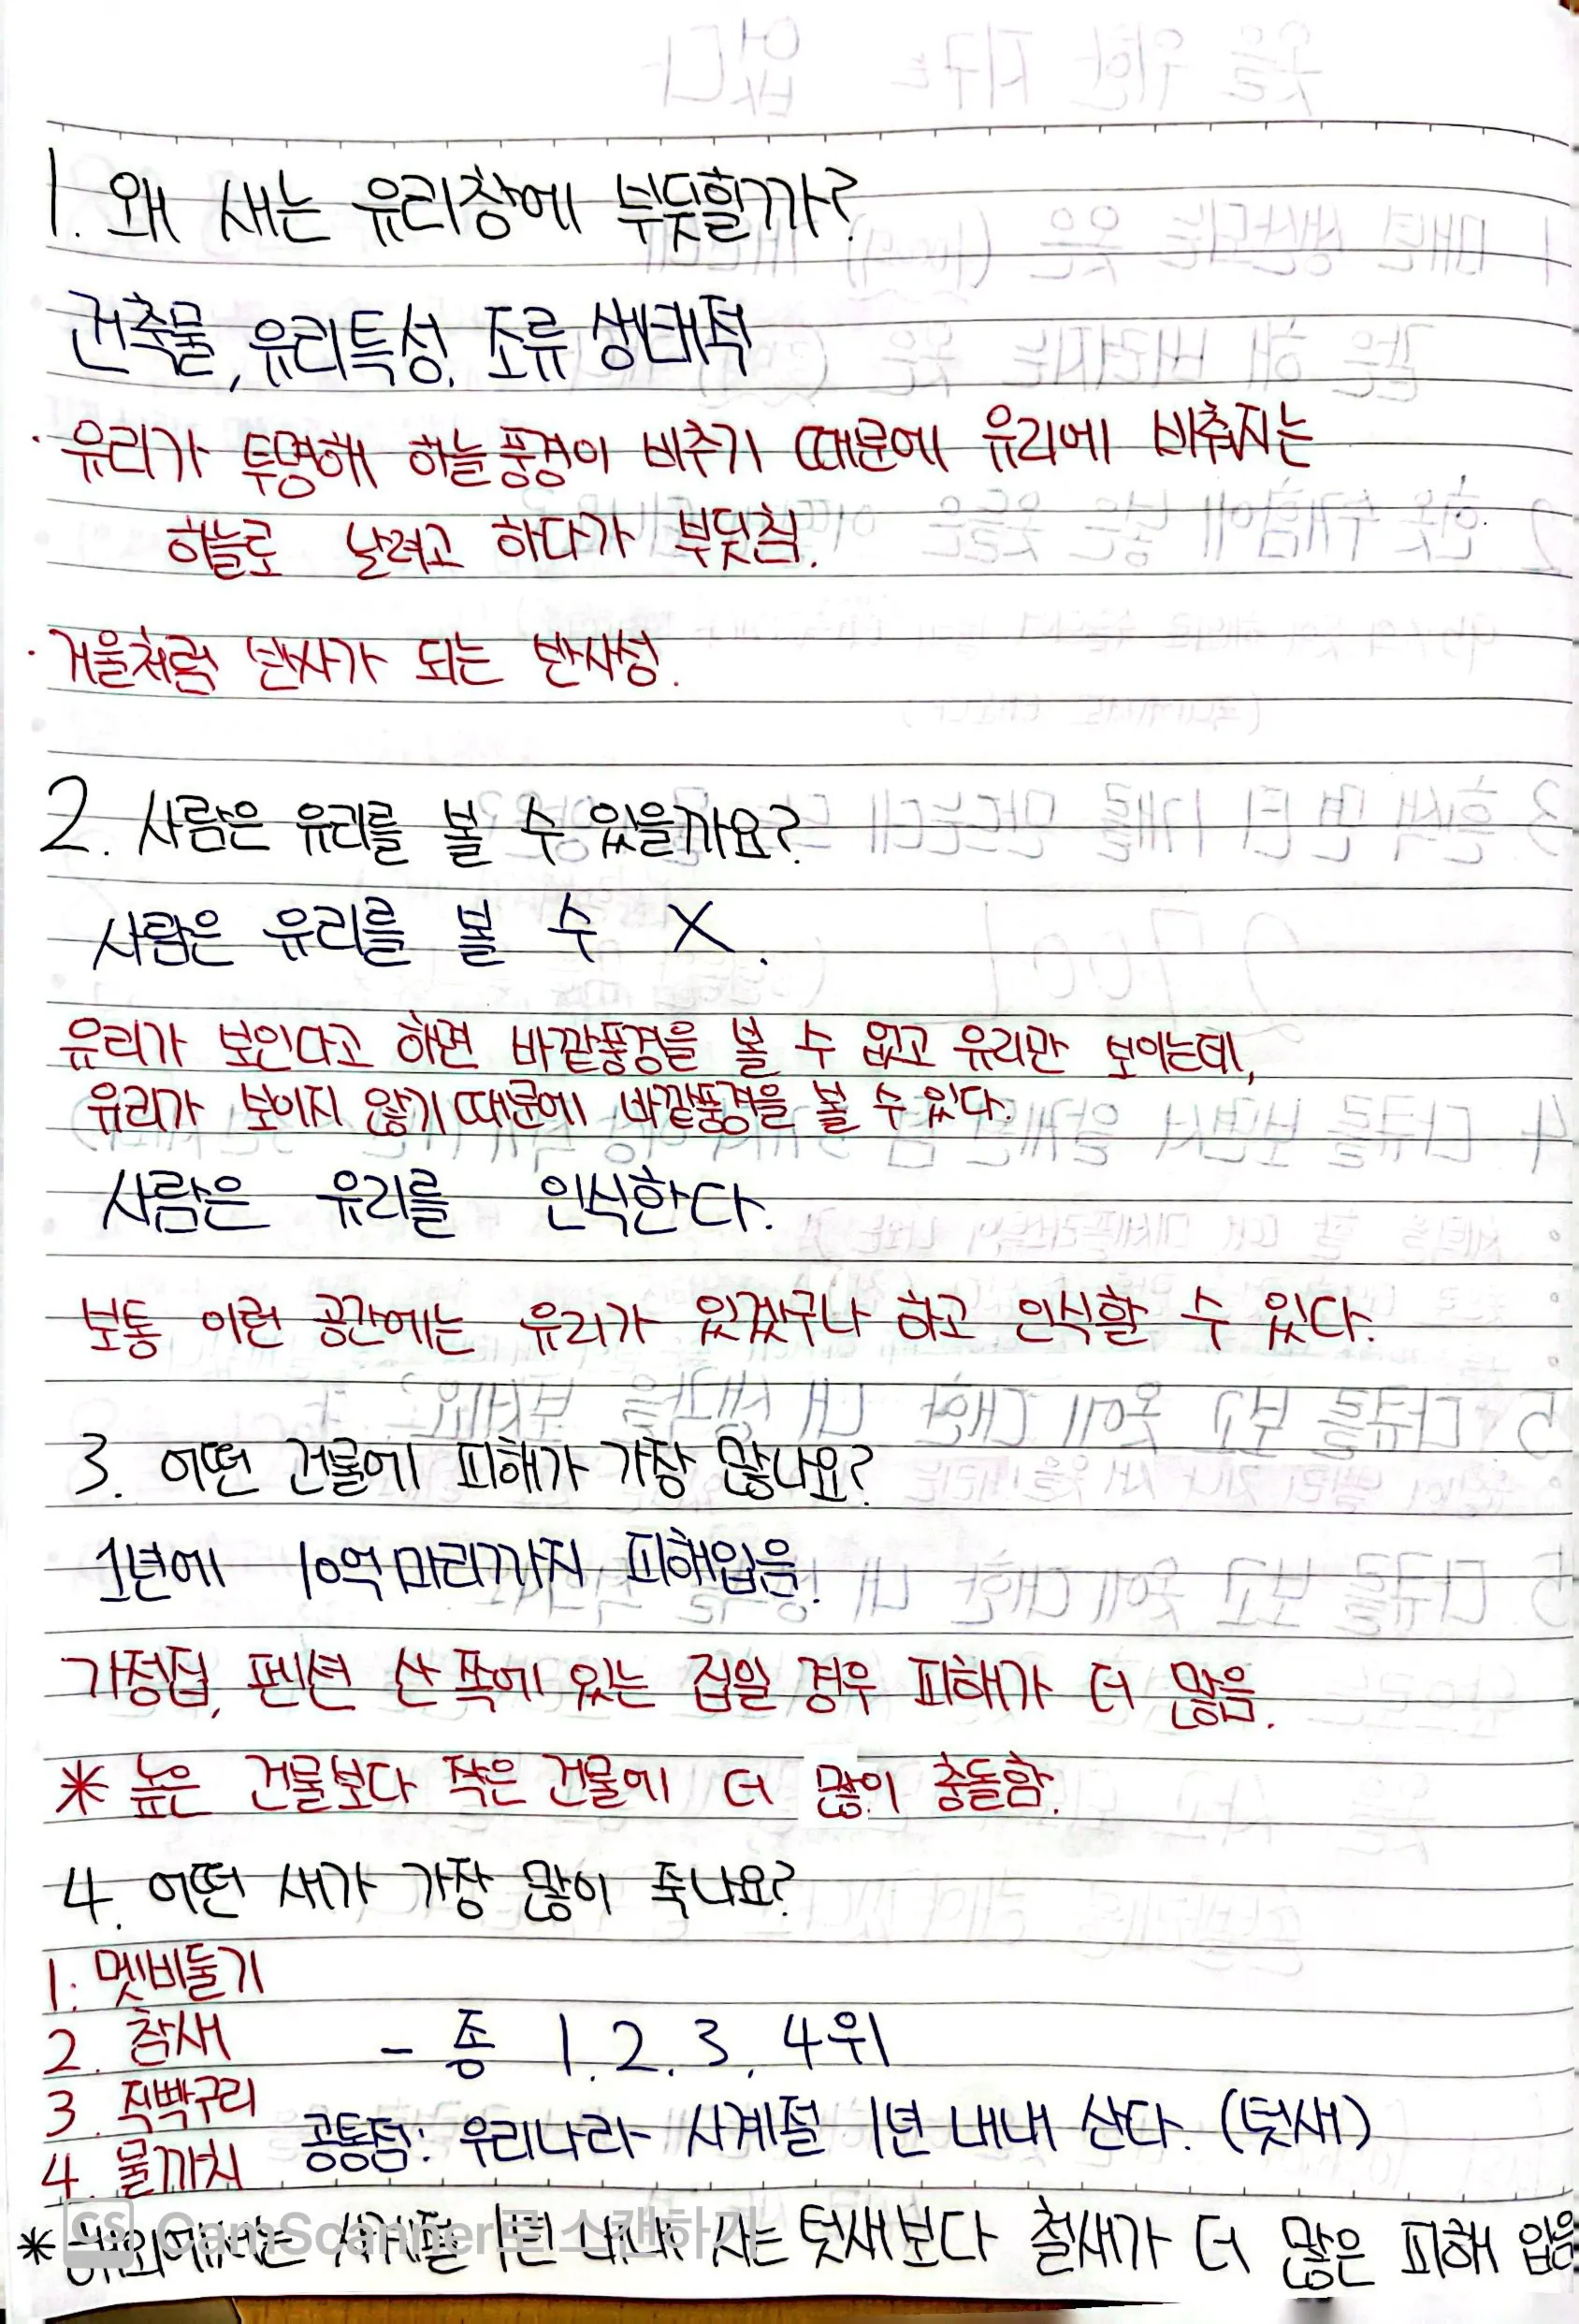 1. 왜 새는 유리창에 부딪힐까?
건축물, 유리특성, 조류 생태적
· 유리가 투명해 하늘풍경이 비추기 때문에 유리에 비춰지는
하늘로 날려고 하다가 부딪침.
· 거울처럼 반사가 되는 반사성.
2. 사람은 유리를 볼 수 있을까요?
사람은 유리를 볼 수 X.
유리가 보인다고 하면 바깥풍경을 볼 수 없고 유리만 보이는데,
유리가 보이지 않기 때문에 바깥풍경을 볼 수 있다.
사람은 유리를 인식한다.
보통 이런 공간에는 유리가 있겠구나 하고 인식할 수 있다.
3. 어떤 건물에 피해가 가장 많나요?
1년에 10억 마리까지 피해입음.
가정집, 펜션 산 쪽에 있는 집일 경우 피해가 더 많음.
* 높은 건물보다 작은 건물에 더 많이 충돌함.
4. 어떤 새가 가장 많이 죽나요?
1. 멧비둘기
2. 참새 - 종 1.2.3.4위
3. 직빡구리
4. 물까치 공통점: 우리나라 사계절 1년 내내 산다. (텃새)
* 해외에서는 사계절 1년 내내 사는 텃새보다 철새가 더 많은 피해 입음
CS CamScanner로 스캔하기